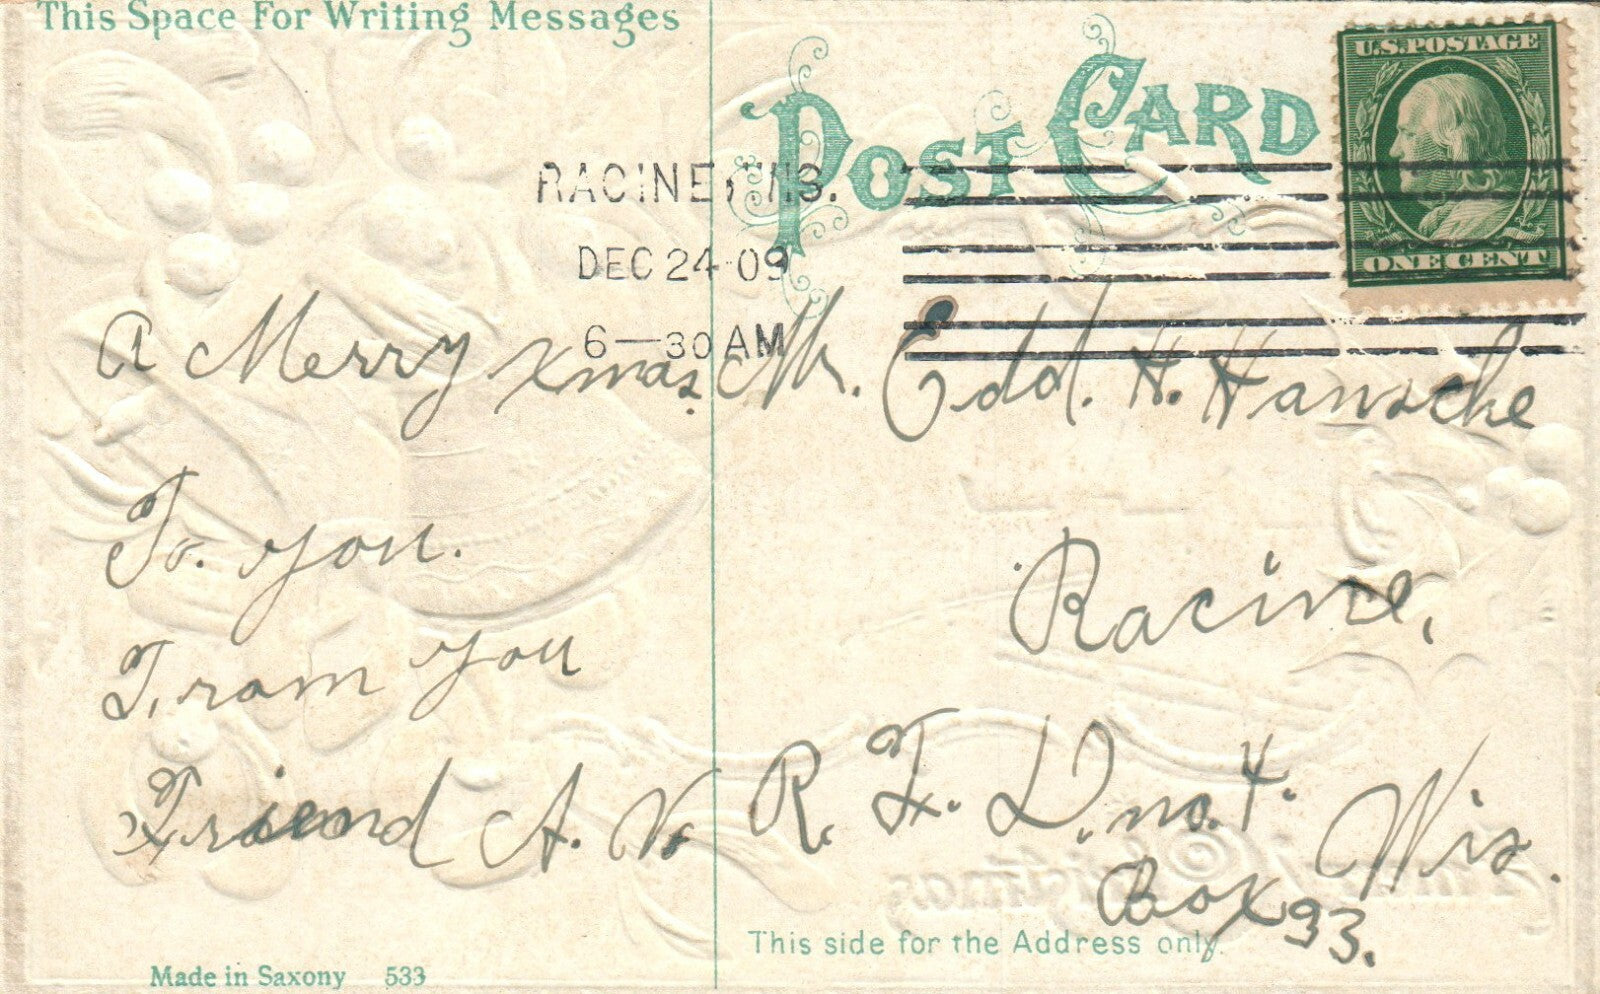 This Space For Writing Messages
POST CARD
U.S. POSTAGE
ONE CENT
RACINE, WIS.
DEC 24 09
6—30 AM
A Merry Xmas.
To. you.
From you
Friend A. V.
Mr. Edd. H. Hansche
Racine,
R. F. D. no. 4. Wis.
Box 93.
This side for the Address only.
Made in Saxony 533